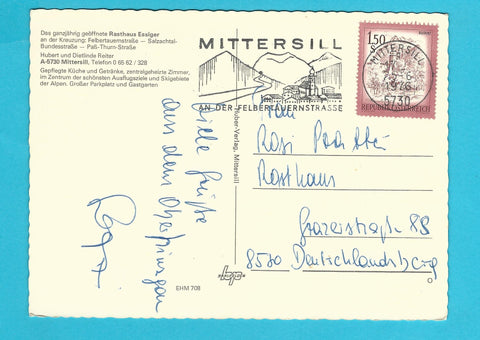 Das ganzjährig geöffnete Rasthaus Essiger
an der Kreuzung: Felbertauernstraße – Salzachtal-
Bundesstraße – Paß-Thurn-Straße
Hubert und Dietlinde Reiter
A-5730 Mittersill, Telefon 0 65 62 / 328
Gepflegte Küche und Getränke, zentralgeheizte Zimmer,
im Zentrum der schönsten Ausflugsziele und Skigebiete
der Alpen. Großer Parkplatz und Gastgarten
MITTERSILL
AN DER FELBERTAUERNSTRASSE
1.50
REPUBLIK ÖSTERREICH
MITTERSILL
1976
5730
Viele Grüße
aus dem Oberpinzgau
Huber-Verlag, Mittersill
EHM 708
Frau
Rosi
Rasthaus
Grazerstraße 88
8530 Deutschlandsberg